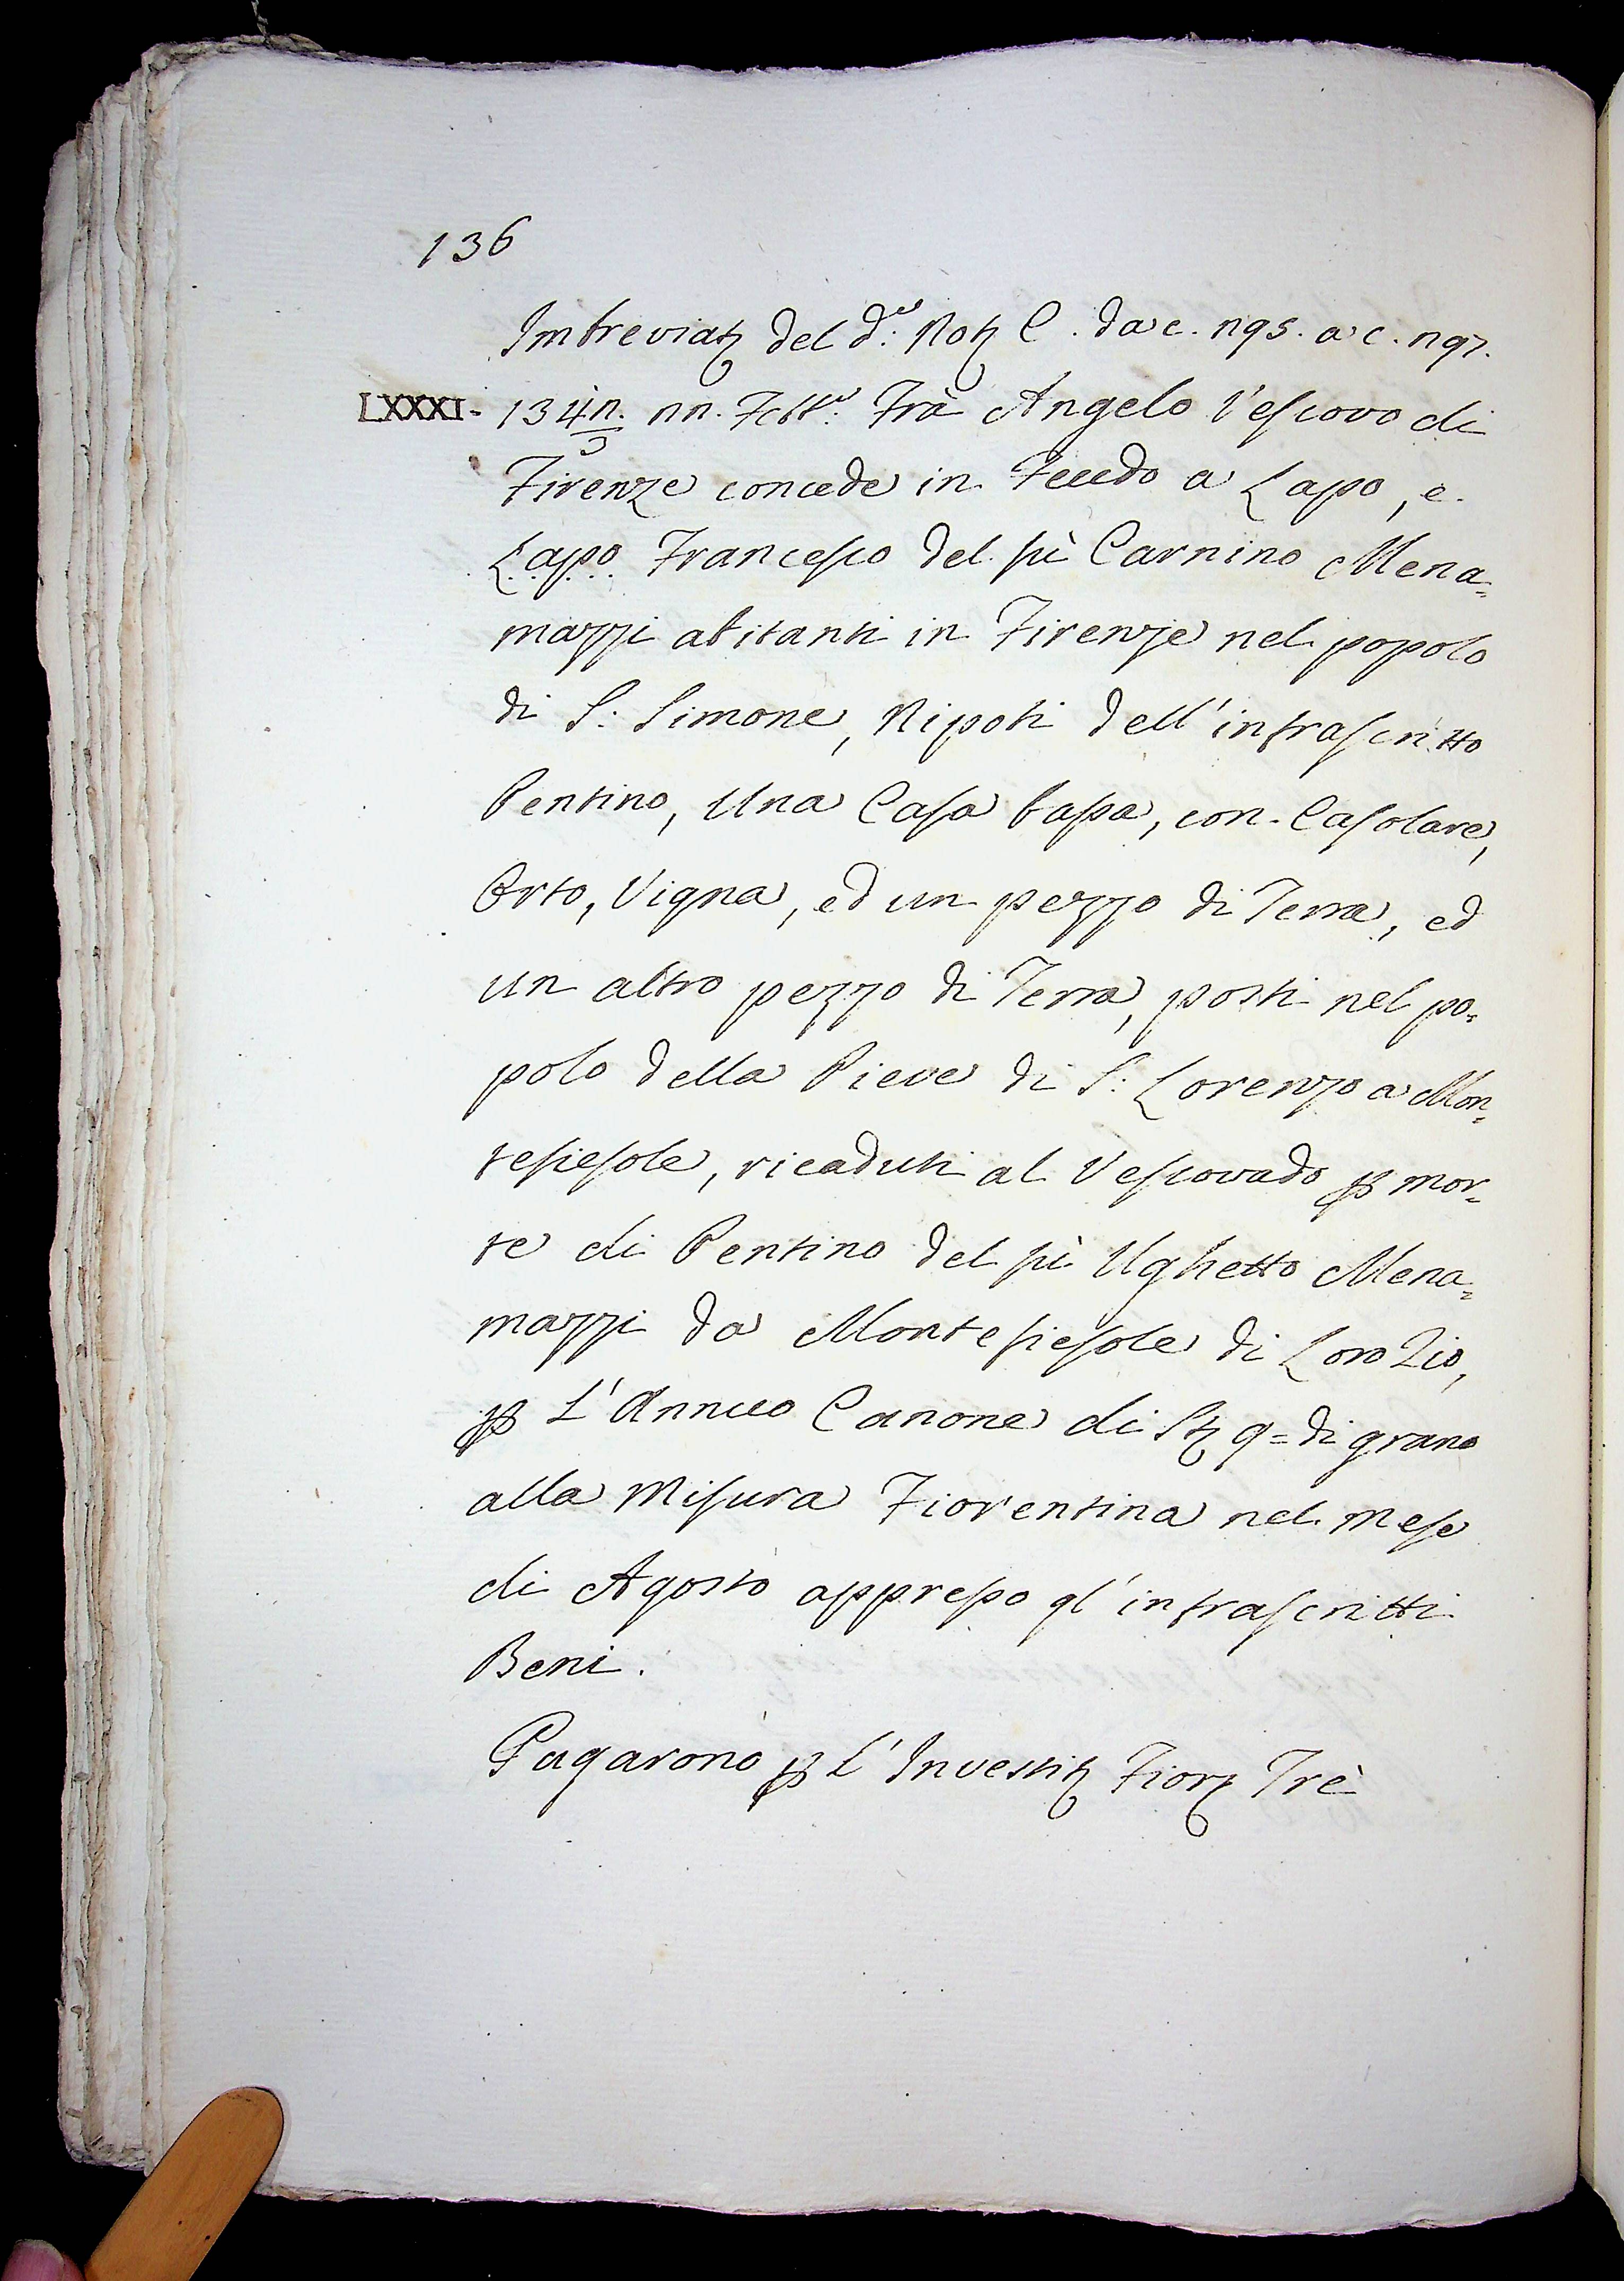 136
Imbreviat del d.º Not C. da c. 195. a c. 197.
LXXXI - 134 11. Febb.º Frà Angelo Vescovo di
Firenze concede in Feudo a Lapo, e
Lapo Francesco del fù Carnino Mena=
mazzi abitanti in Firenze nel popolo
di S: Simone, Nipoti dell'infrascritto
Pentino, Una Casa bassa, con Casolare,
Orto, Vigna, ed un pezzo di Terra, ed
un altro pezzo di Terra, posti nel po=
polo della Pieve di S: Lorenzo a Mon=
tefiesole, ricaduti al Vescovado p mor=
te di Pentino del fù Ughetto Mena=
mazzi da Montefiesole di Loro Zio,
p L'Annuo Canone di St 9= di grano
alla Misura Fiorentina nel Mese
di Agosto appresso gl'infrascritti
Beni.
Pagarono p L'Investit Fior Trè